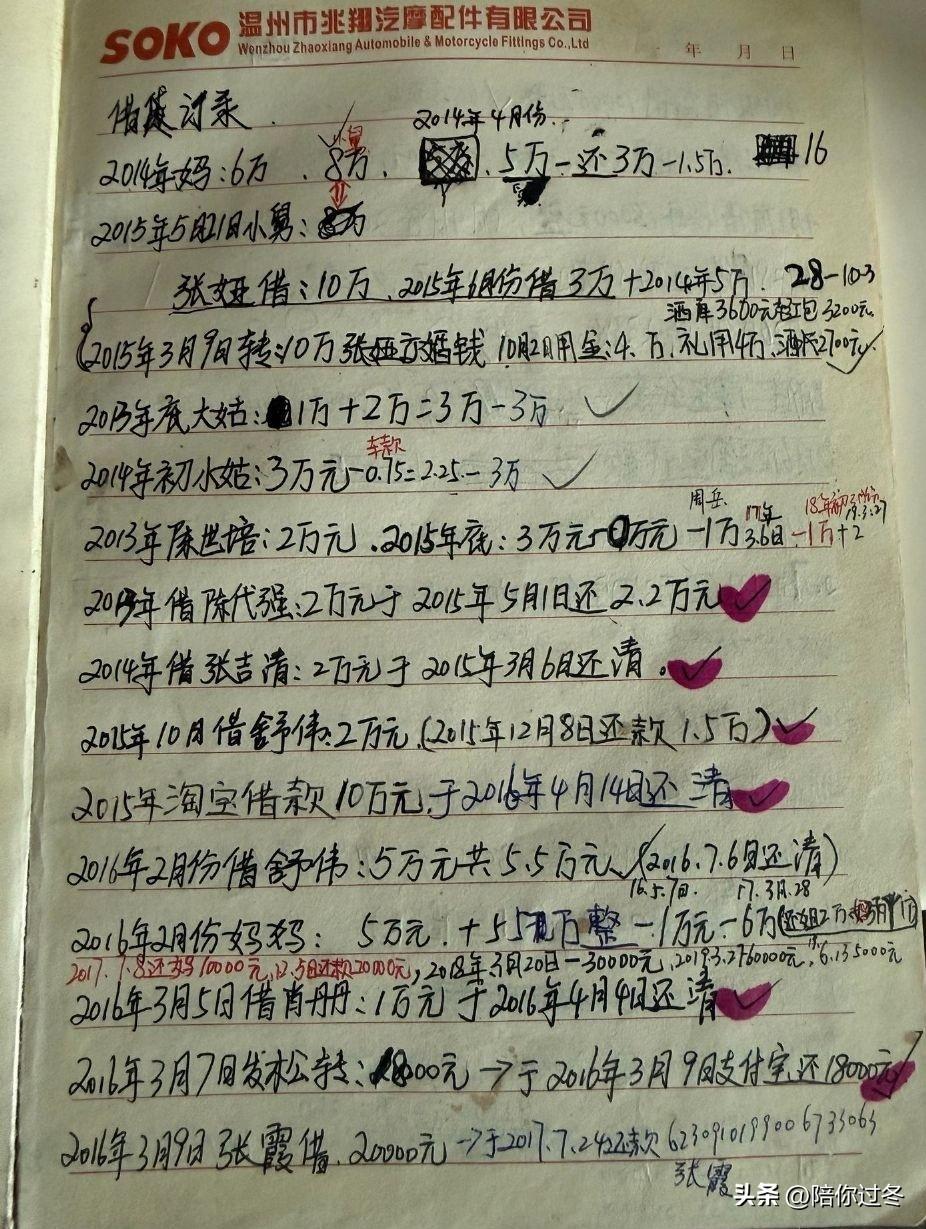 SOKO 温州市兆翔汽摩配件有限公司
Wenzhou Zhaoxiang Automobile & Motorcycle Fittings Co.,Ltd
年 月 日
借贷记录
2014年4月份
小舅
2014年妈:6万、8万、5万-还3万-1.5万 16
2015年5月21日小舅:
张娅借:10万、2015年6月份借3万+2014年5万. 28-10-3
酒席3600元 红包3200元
2015年3月9日转:10万张娅交婚钱 10月2日用金:4.万、礼用4万、酒席2700元
2013年底大姑:1万+2万=3万-3万
车款
2014年初小姑:3万元-0.75=2.25-3万
周岳 17年 18年初
2013年陈世培:2万元、2015年底:3万元-0万元-1万 3.6日 -1万+2
19.3.27
2013年借陈代强:2万元于2015年5月1日还2.2万元
2014年借张吉清:2万元于2015年3月6日还清.
2015年10月借舒伟:2万元.(2015年12月8日还款1.5万)
2015年淘宝借款10万元.于2016年4月14日还清
2016年2月份借舒伟:5万元共5.5万元(2016.7.6日还清)
16.5.7日. 17.3月.28
2016年2月份妈妈: 5万元.+5 万整-1万元-6万(还姐2万
2017.7.8还妈10000元,12.5日还款20000元,2018年3月20日-30000元,2019.3.27 60000元,6.13 5000元
2016年3月5日借肖丹丹:1万元于2016年4月4日还清
2016年3月7日发松转:18000元→于2016年3月9日支付宝还18000元
2016年3月9日张霞借.20000元→于2017.7.24还款6230910199006733063
张霞
头条 @陪你过冬